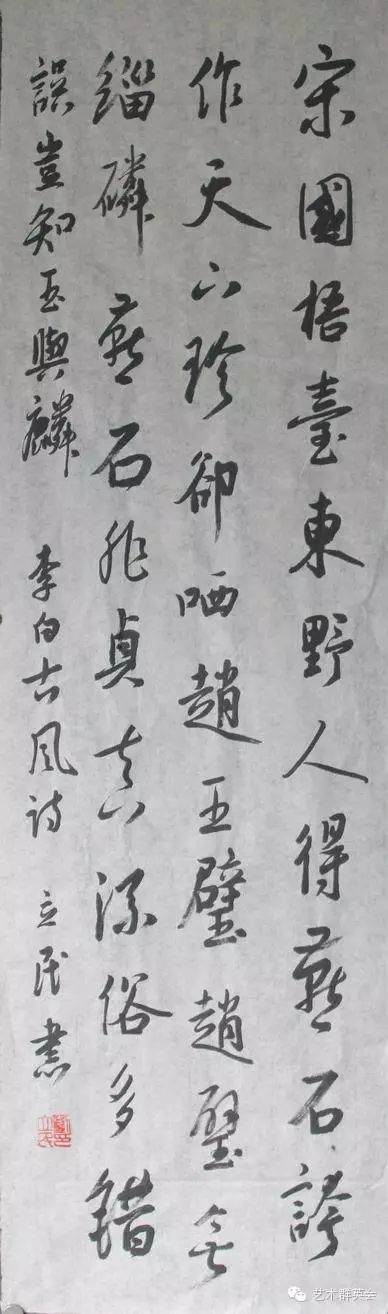 宋國梧臺東野人得燕石誇
作天下珍卻哂趙王璧趙璧無
緇磷燕石非貞真流俗多錯
誤豈知玉與麟 李白古風诗 立民書
艺术群英会